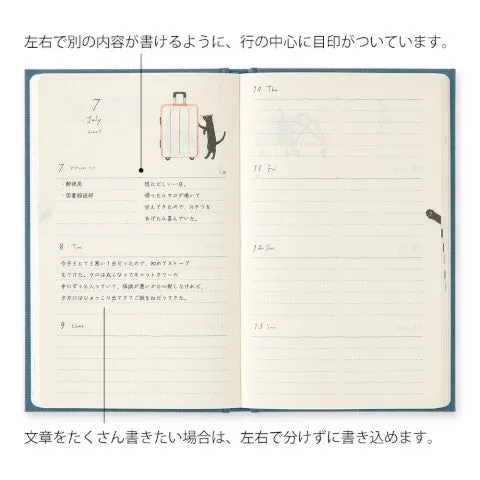 左右で別の内容が書けるように、行の中心に目印がついています。
7
July
7 Mon
・郵便局
・図書館返却
慌ただしい一日。
帰ったらクロが鳴いて
甘えてきたので、おやつを
あげたら喜んでいた。
8 Tue
今日もとても寒い1日だったので、初めてストーブ
をつけた。クロは丸くなってキャットタワーの
中にずっと入っていて、体調が悪いかと心配したけれど、
夕方にはひょっこり出てきてご飯をねだってきた。
9 Wed
10 Thu
11 Fri
12 Sat
13 Sun
7
文章をたくさん書きたい場合は、左右で分けずに書き込めます。